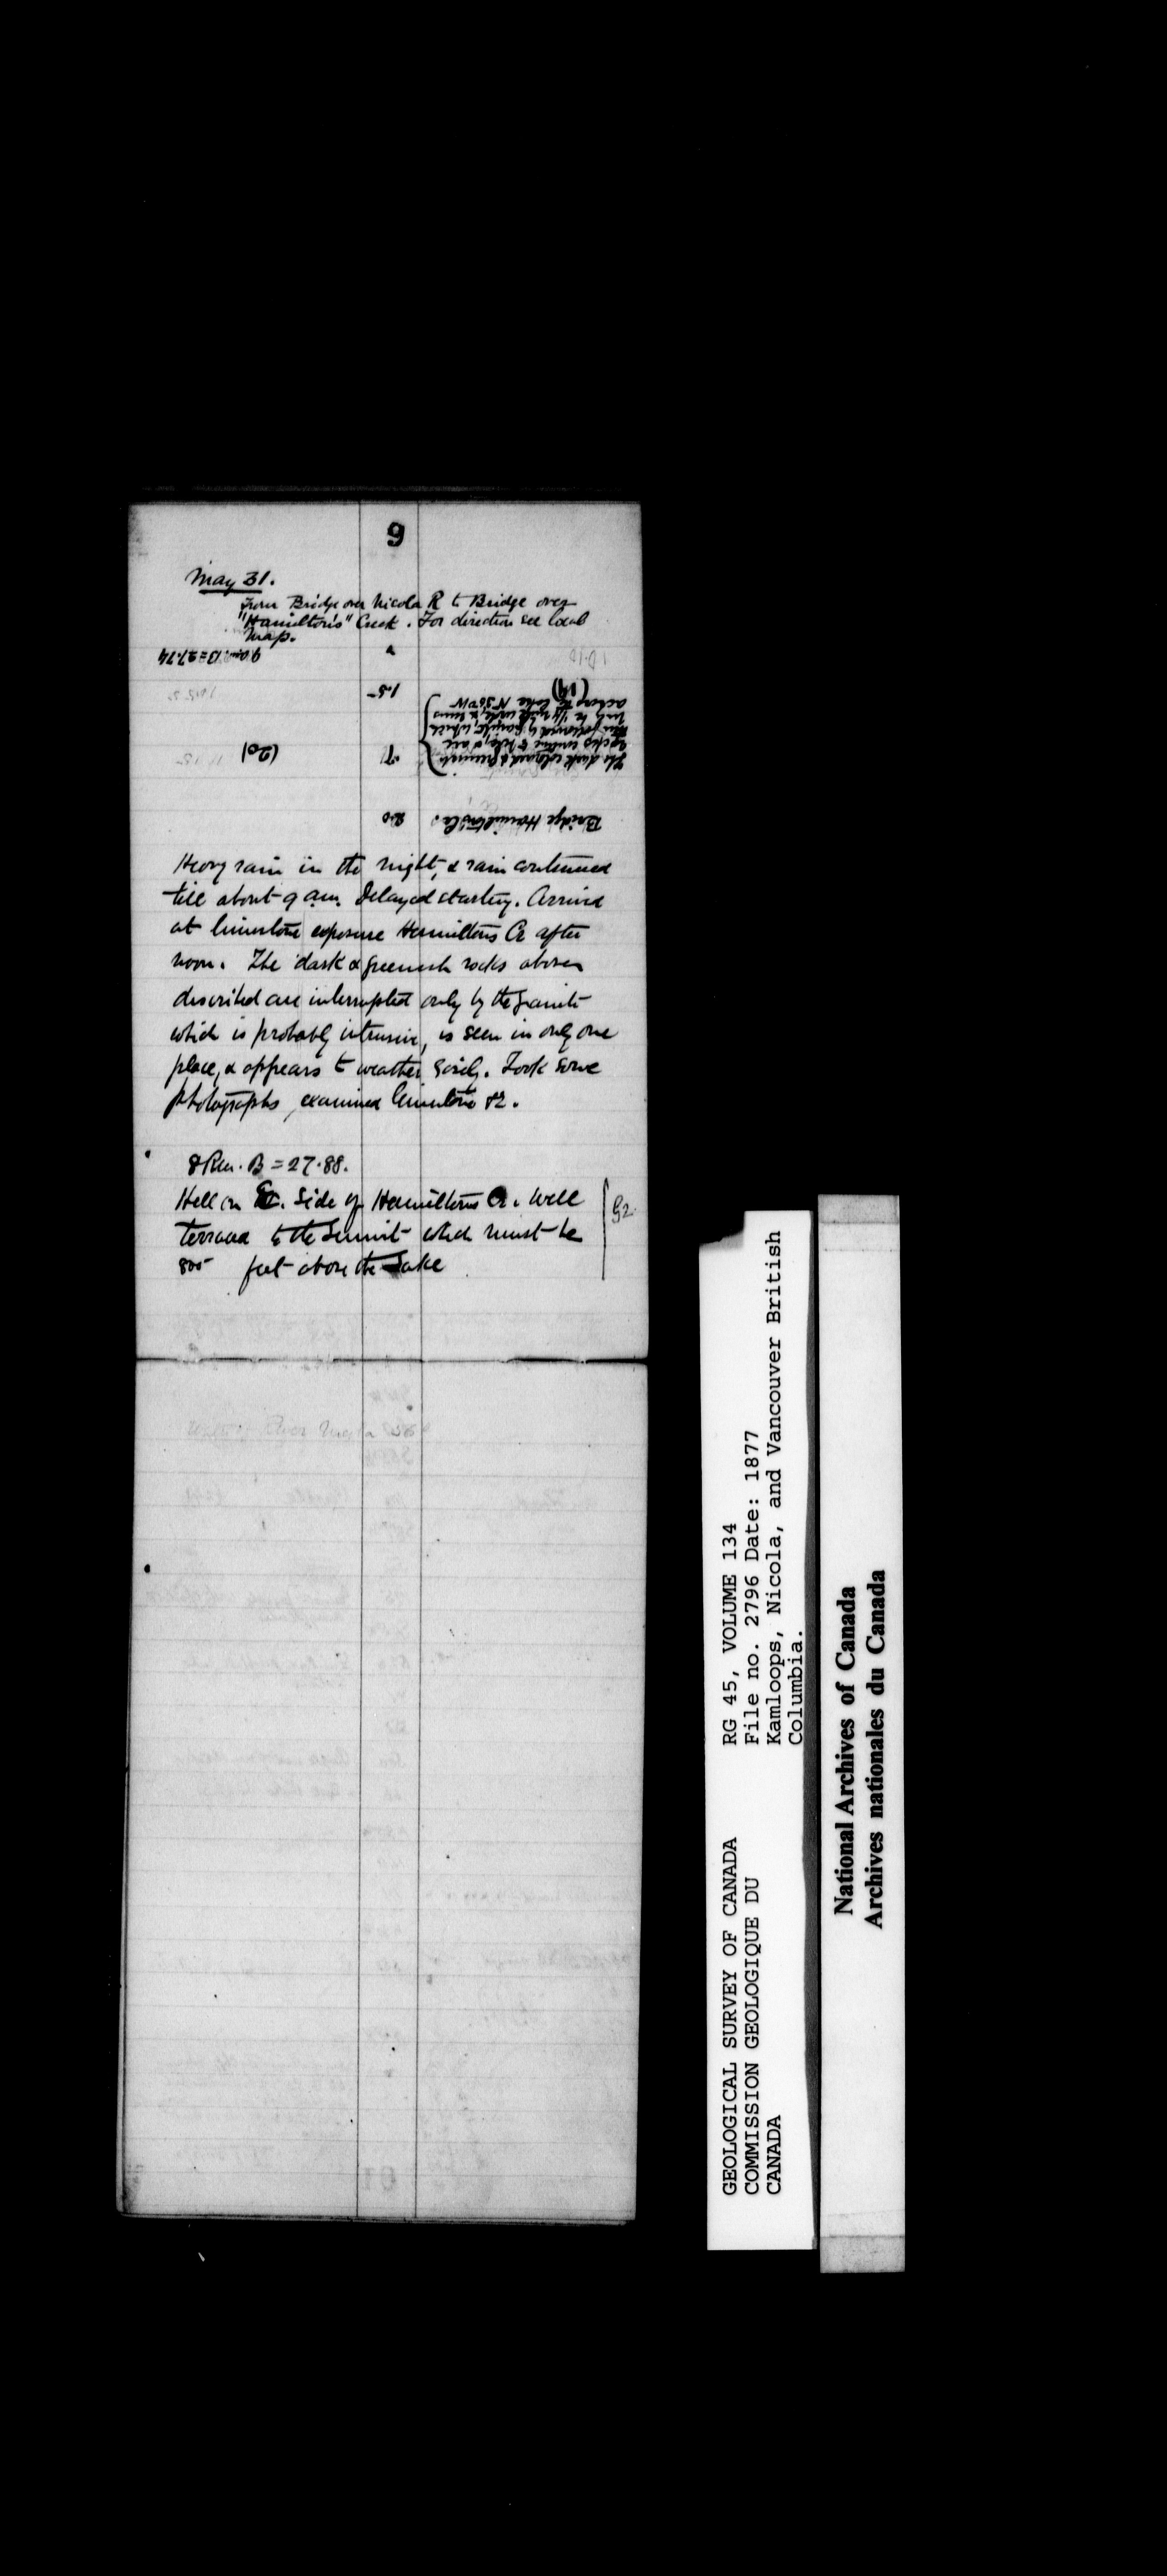 9
May 31.
From Bridge over Nicola R to Bridge over
"Hamilton's" Creek. For direction see local
Map.
9 am. B = 27.74
(19)
1.5
The dark coloured & greenish
rocks continue to hele, & are
then followed by granite, which
only to 1/4 mile wide, & runs
across the lake N 50 W
(20)
.71
Bridge Hamiltons Cr.
200
Heavy rain in the night, & rain continued
till about 9 am. Delayed starting. Arrived
at limestone exposure Hamiltons Cr after
noon. The dark & greenish rocks above
described are interrupted only by the granite
which is probably intrusive, is seen in only one
place, & appears to weather easily. Took some
photographs, examined limestone &c.
8 P.M. B = 27.88.
Hill on E. side of Hamiltons Cr. well
terraced to the summit which must be
800 feet above the Lake
GEOLOGICAL SURVEY OF CANADA
COMMISSION GEOLOGIQUE DU
CANADA
RG 45, VOLUME 134
File no. 2796 Date: 1877
Kamloops, Nicola, and Vancouver British
Columbia.
National Archives of Canada
Archives nationales du Canada